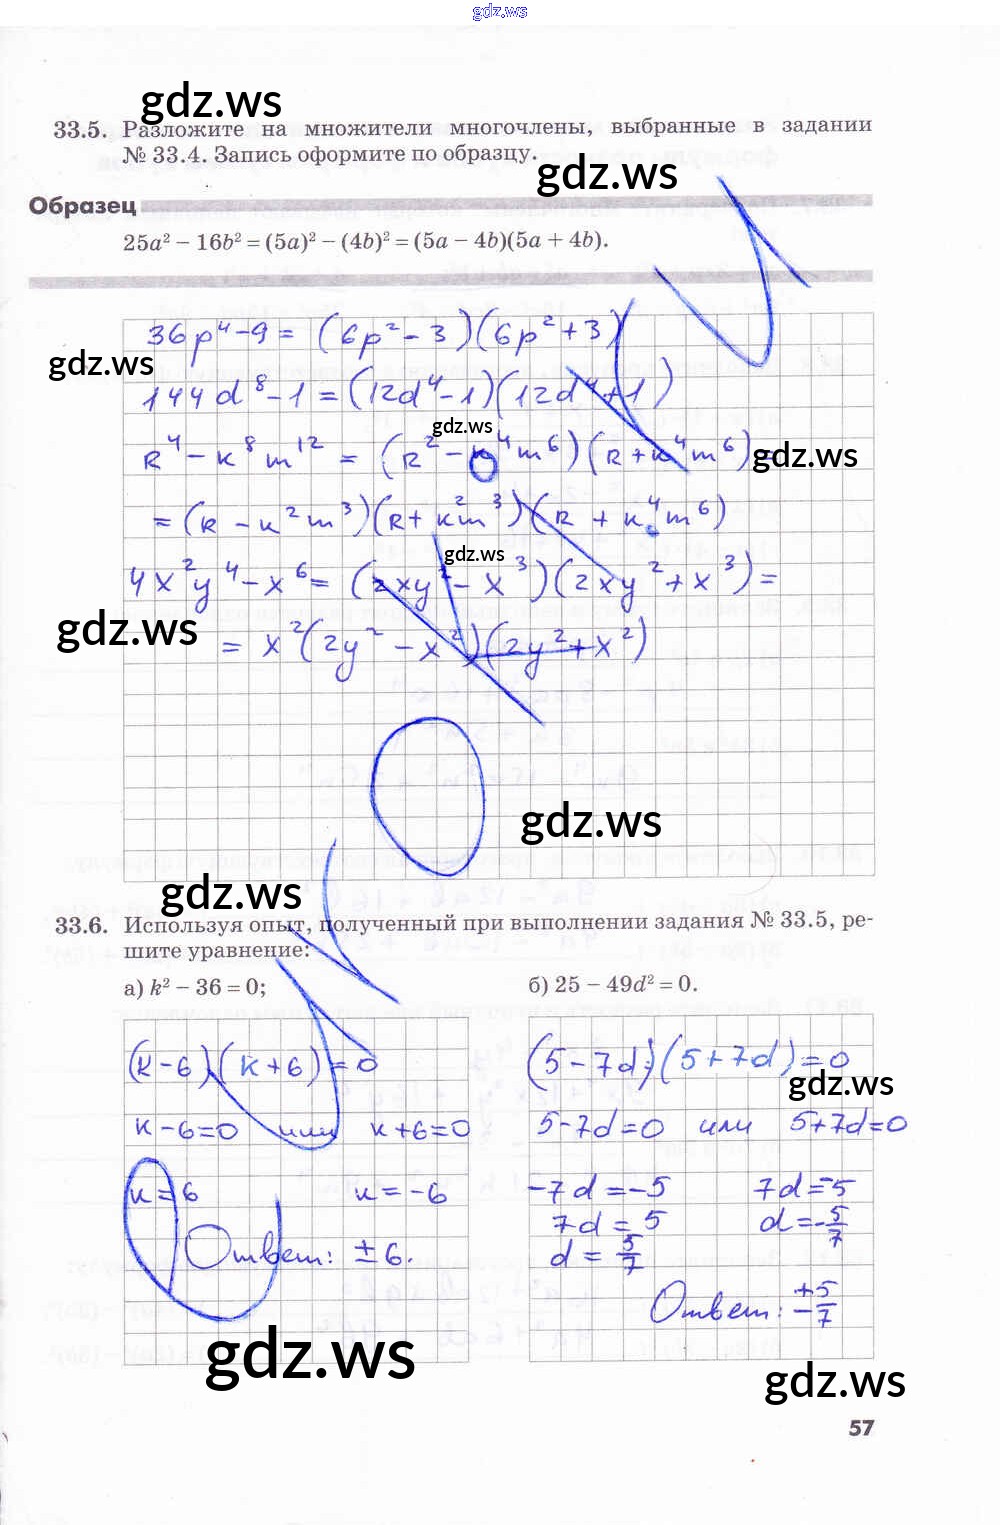 gdz.ws
gdz.ws
33.5. Разложите на множители многочлены, выбранные в задании
№ 33.4. Запись оформите по образцу.
gdz.ws
Образец
25a² − 16b² = (5a)² − (4b)² = (5a − 4b)(5a + 4b).
36p⁴ − 9 = (6p² − 3)(6p² + 3)
gdz.ws
144d⁸ − 1 = (12d⁴ − 1)(12d⁴ + 1)
gdz.ws
R⁴ − k⁸m¹² = (R² − k⁴m⁶)(R + k⁴m⁶) =
gdz.ws
= (R − k²m³)(R + k²m³)(R + k⁴m⁶)
gdz.ws
4x²y⁴ − x⁶ = (2xy² − x³)(2xy² + x³) =
gdz.ws
= x²(2y² − x²)(2y² + x²)
gdz.ws
gdz.ws
33.6. Используя опыт, полученный при выполнении задания № 33.5, ре-
шите уравнение:
а) k² − 36 = 0; б) 25 − 49d² = 0.
(k − 6)(k + 6) = 0 (5 − 7d)(5 + 7d) = 0
gdz.ws
k − 6 = 0 или k + 6 = 0 5 − 7d = 0 или 5 + 7d = 0
k = 6 k = −6 −7d = −5 7d = −5
7d = 5 d = −5/7
Ответ: ± 6. d = 5/7
Ответ: ± 5/7
gdz.ws
gdz.ws
57